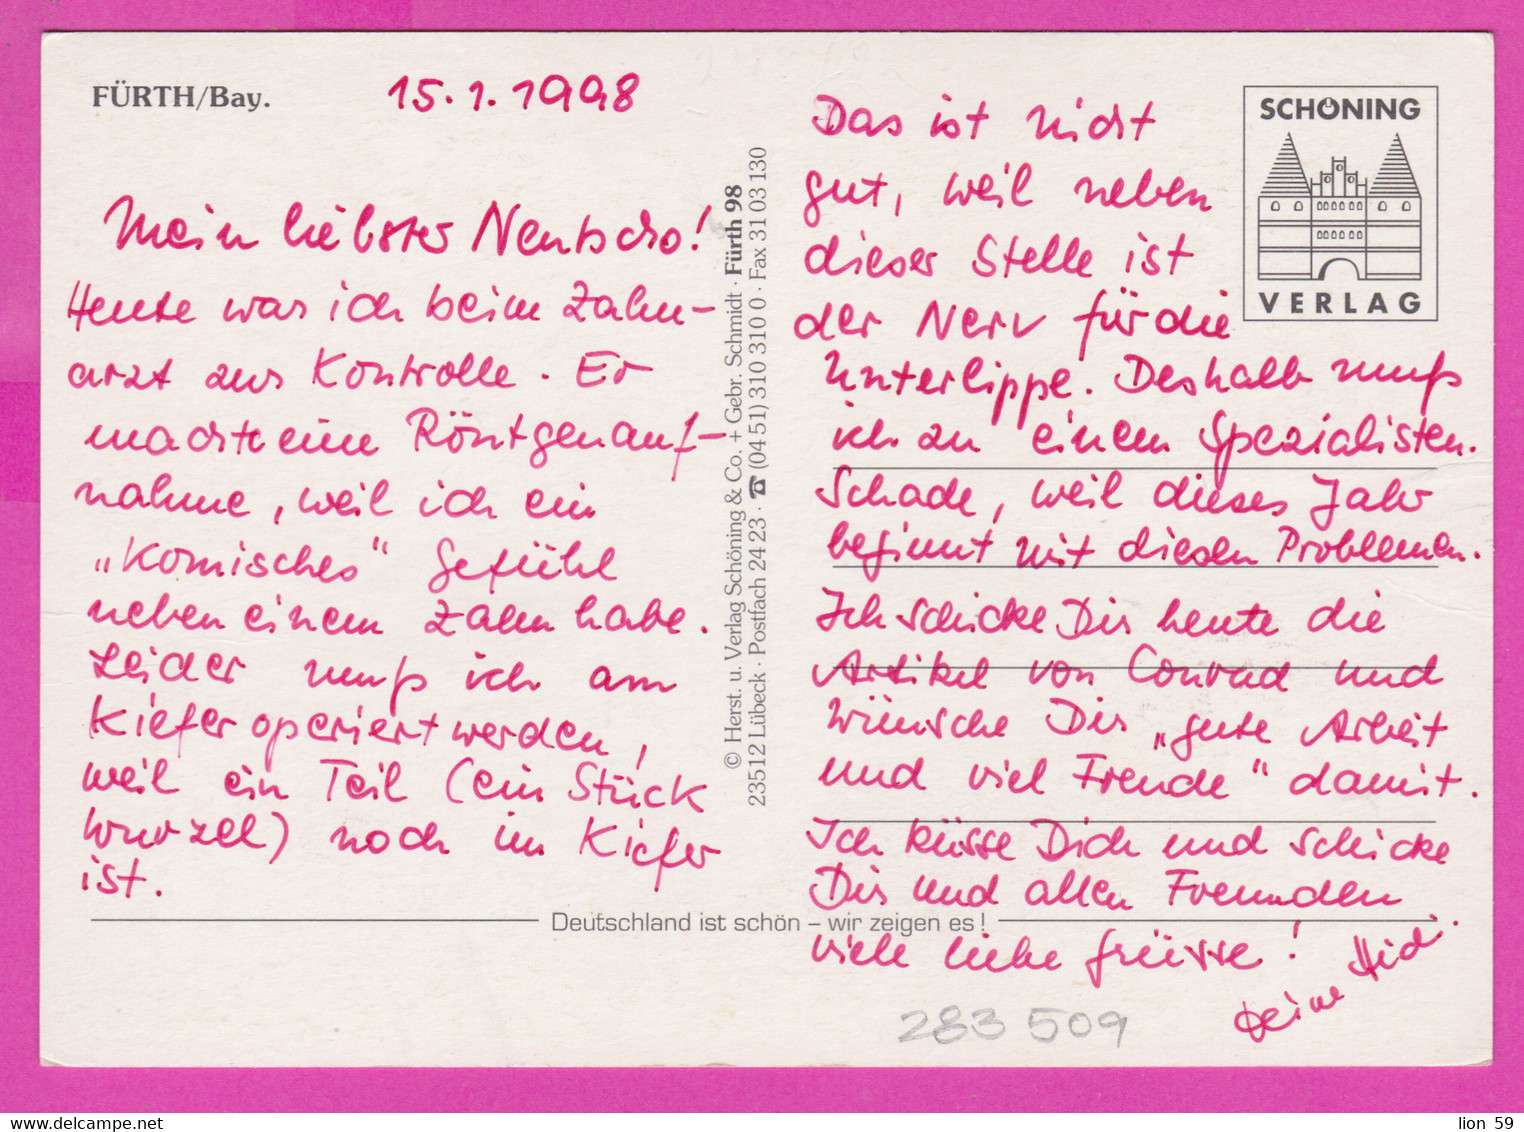 FÜRTH/Bay.
15.1.1998
Mein liebster Nentscho!
Heute war ich beim Zahn-
arzt zur Kontrolle. Er
machte eine Röntgenauf-
nahme, weil ich ein
„Komisches“ Gefühl
neben einem Zahn habe.
Leider muß ich am
Kiefer operiert werden,
weil ein Teil (ein Stück
Wurzel) noch im Kiefer
ist.
© Herst. u. Verlag Schöning & Co. + Gebr. Schmidt · Fürth 98
23512 Lübeck · Postfach 24 23 · ☎ (04 51) 310 310 0 · Fax 31 03 130
SCHÖNING
VERLAG
Das ist nicht
gut, weil neben
dieser Stelle ist
der Nerv für die
Unterlippe. Deshalb muß
ich zu einem Spezialisten.
Schade, weil dieses Jahr
beginnt mit diesen Problemen.
Ich schicke Dir heute die
Artikel von Conrad und
wünsche Dir „gute Arbeit
und viel Freude“ damit.
Ich küsse Dich und schicke
Dir und allen Freunden
viele liebe Grüsse!
Deine Heidi
Deutschland ist schön – wir zeigen es!
283 509
lion 59